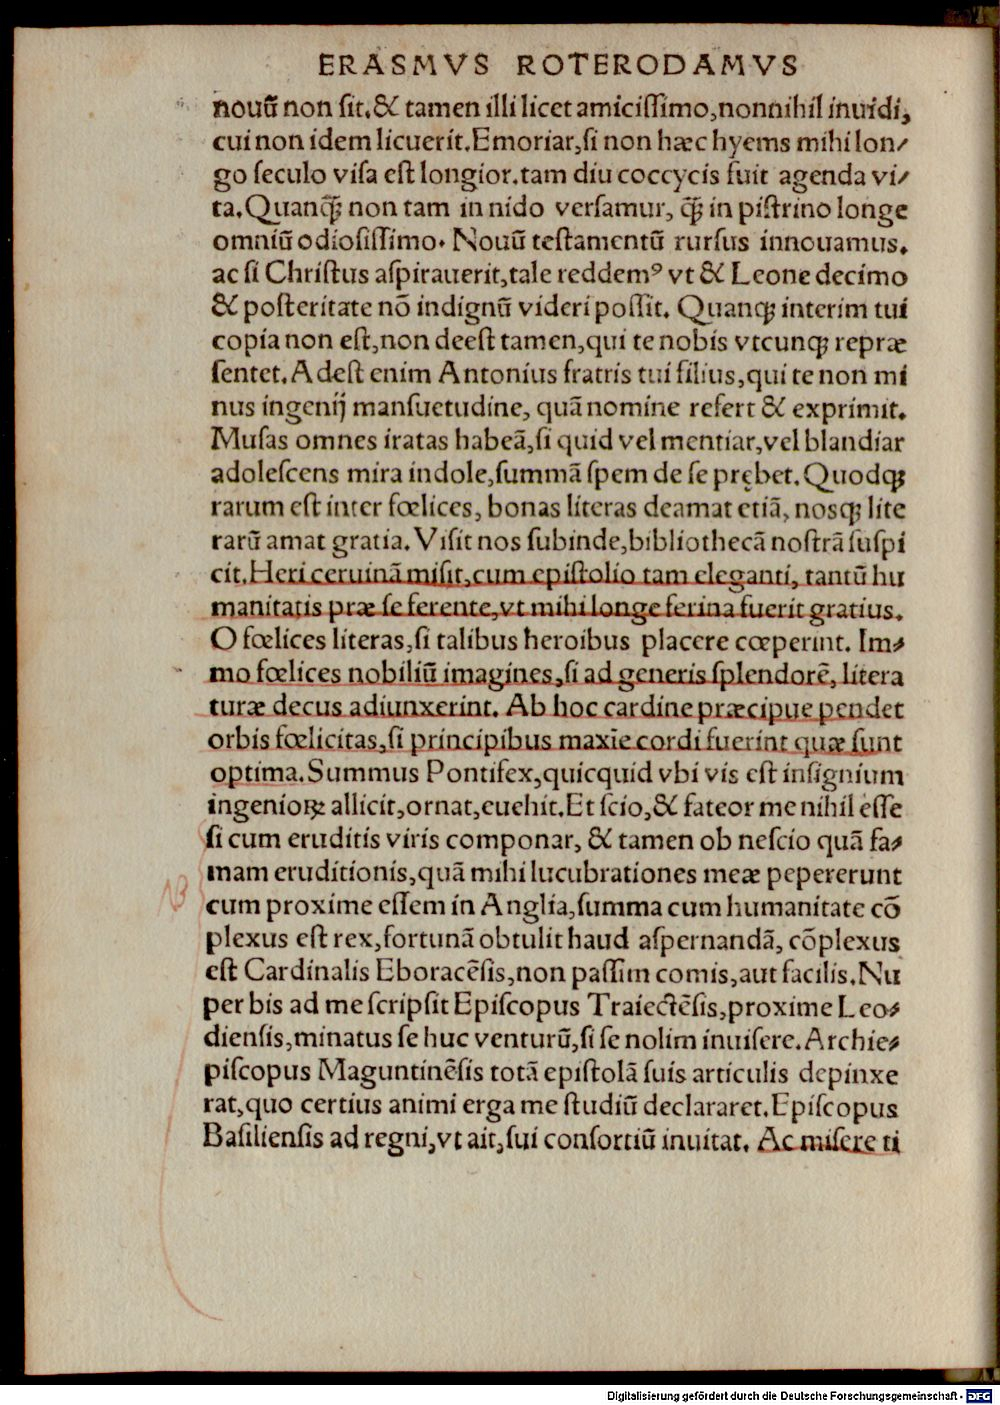 ERASMVS ROTERODAMVS
nouū non ſit.& tamen illi licet amiciſſimo,nonnihil inuidi,
cui non idem licuerit.Emoriar,ſi non hæc hyems mihi lon/
go ſeculo viſa eſt longior.tam diu coccycis fuit agenda vi/
ta.Quanꝗ̃ non tam in nido verſamur, ꝗ̃ in piſtrino longe
omniū odioſiſſimo. Nouū teſtamentū rurſus innouamus.
ac ſi Chriſtus aſpirauerit,tale reddemꝰ vt & Leone decimo
& poſteritate nō indignū videri poſſit. Quanꝗ interim tui
copia non eſt,non deeſt tamen,qui te nobis vtcunꝗ repræ
ſentet.Adeſt enim Antonius fratris tui filius,qui te non mi
nus ingenij manſuetudine, quā nomine refert & exprimit.
Muſas omnes iratas habeā,ſi quid vel mentiar,vel blandiar
adoleſcens mira indole,ſummā ſpem de ſe prębet.Quodꝗ
rarum eſt inter fœlices, bonas literas deamat etiā, nosꝗ lite
rarū amat gratia. Viſit nos ſubinde,bibliothecā noſtrā ſuſpi
cit.Heri ceruinā miſit,cum epiſtolio tam eleganti, tantū hu
manitatis præ ſe ferente,vt mihi longe ferina fuerit gratius.
O fœlices literas,ſi talibus heroibus placere cœperint. Im/
mo fœlices nobiliū imagines,ſi ad generis ſplendorē, litera
turæ decus adiunxerint. Ab hoc cardine præcipue pendet
orbis fœlicitas,ſi principibus maxīe cordi fuerint quæ ſunt
optima.Summus Pontifex,quicquid vbi vis eſt inſignium
ingenioꝝ allicit,ornat,euehit.Et ſcio,& fateor me nihil eſſe
ſi cum eruditis viris componar, & tamen ob neſcio quā fa/
mam eruditionis,quā mihi lucubrationes meæ pepererunt
cum proxime eſſem in Anglia,ſumma cum humanitate cō
plexus eſt rex,fortunā obtulit haud aſpernandā, cōplexus
eſt Cardinalis Eboracēſis,non paſſim comis,aut facilis.Nu
per bis ad me ſcripſit Epiſcopus Traiectēſis,proxime Leo/
dienſis,minatus ſe huc venturū,ſi ſe nolim inuiſere.Archie/
piſcopus Maguntinēſis totā epiſtolā ſuis articulis depinxe
rat,quo certius animi erga me ſtudiū declararet.Epiſcopus
Baſilienſis ad regni,vt ait,ſui conſortiū inuitat. Ac miſere ti
NB
Digitalisierung gefördert durch die Deutsche Forschungsgemeinschaft - DFG